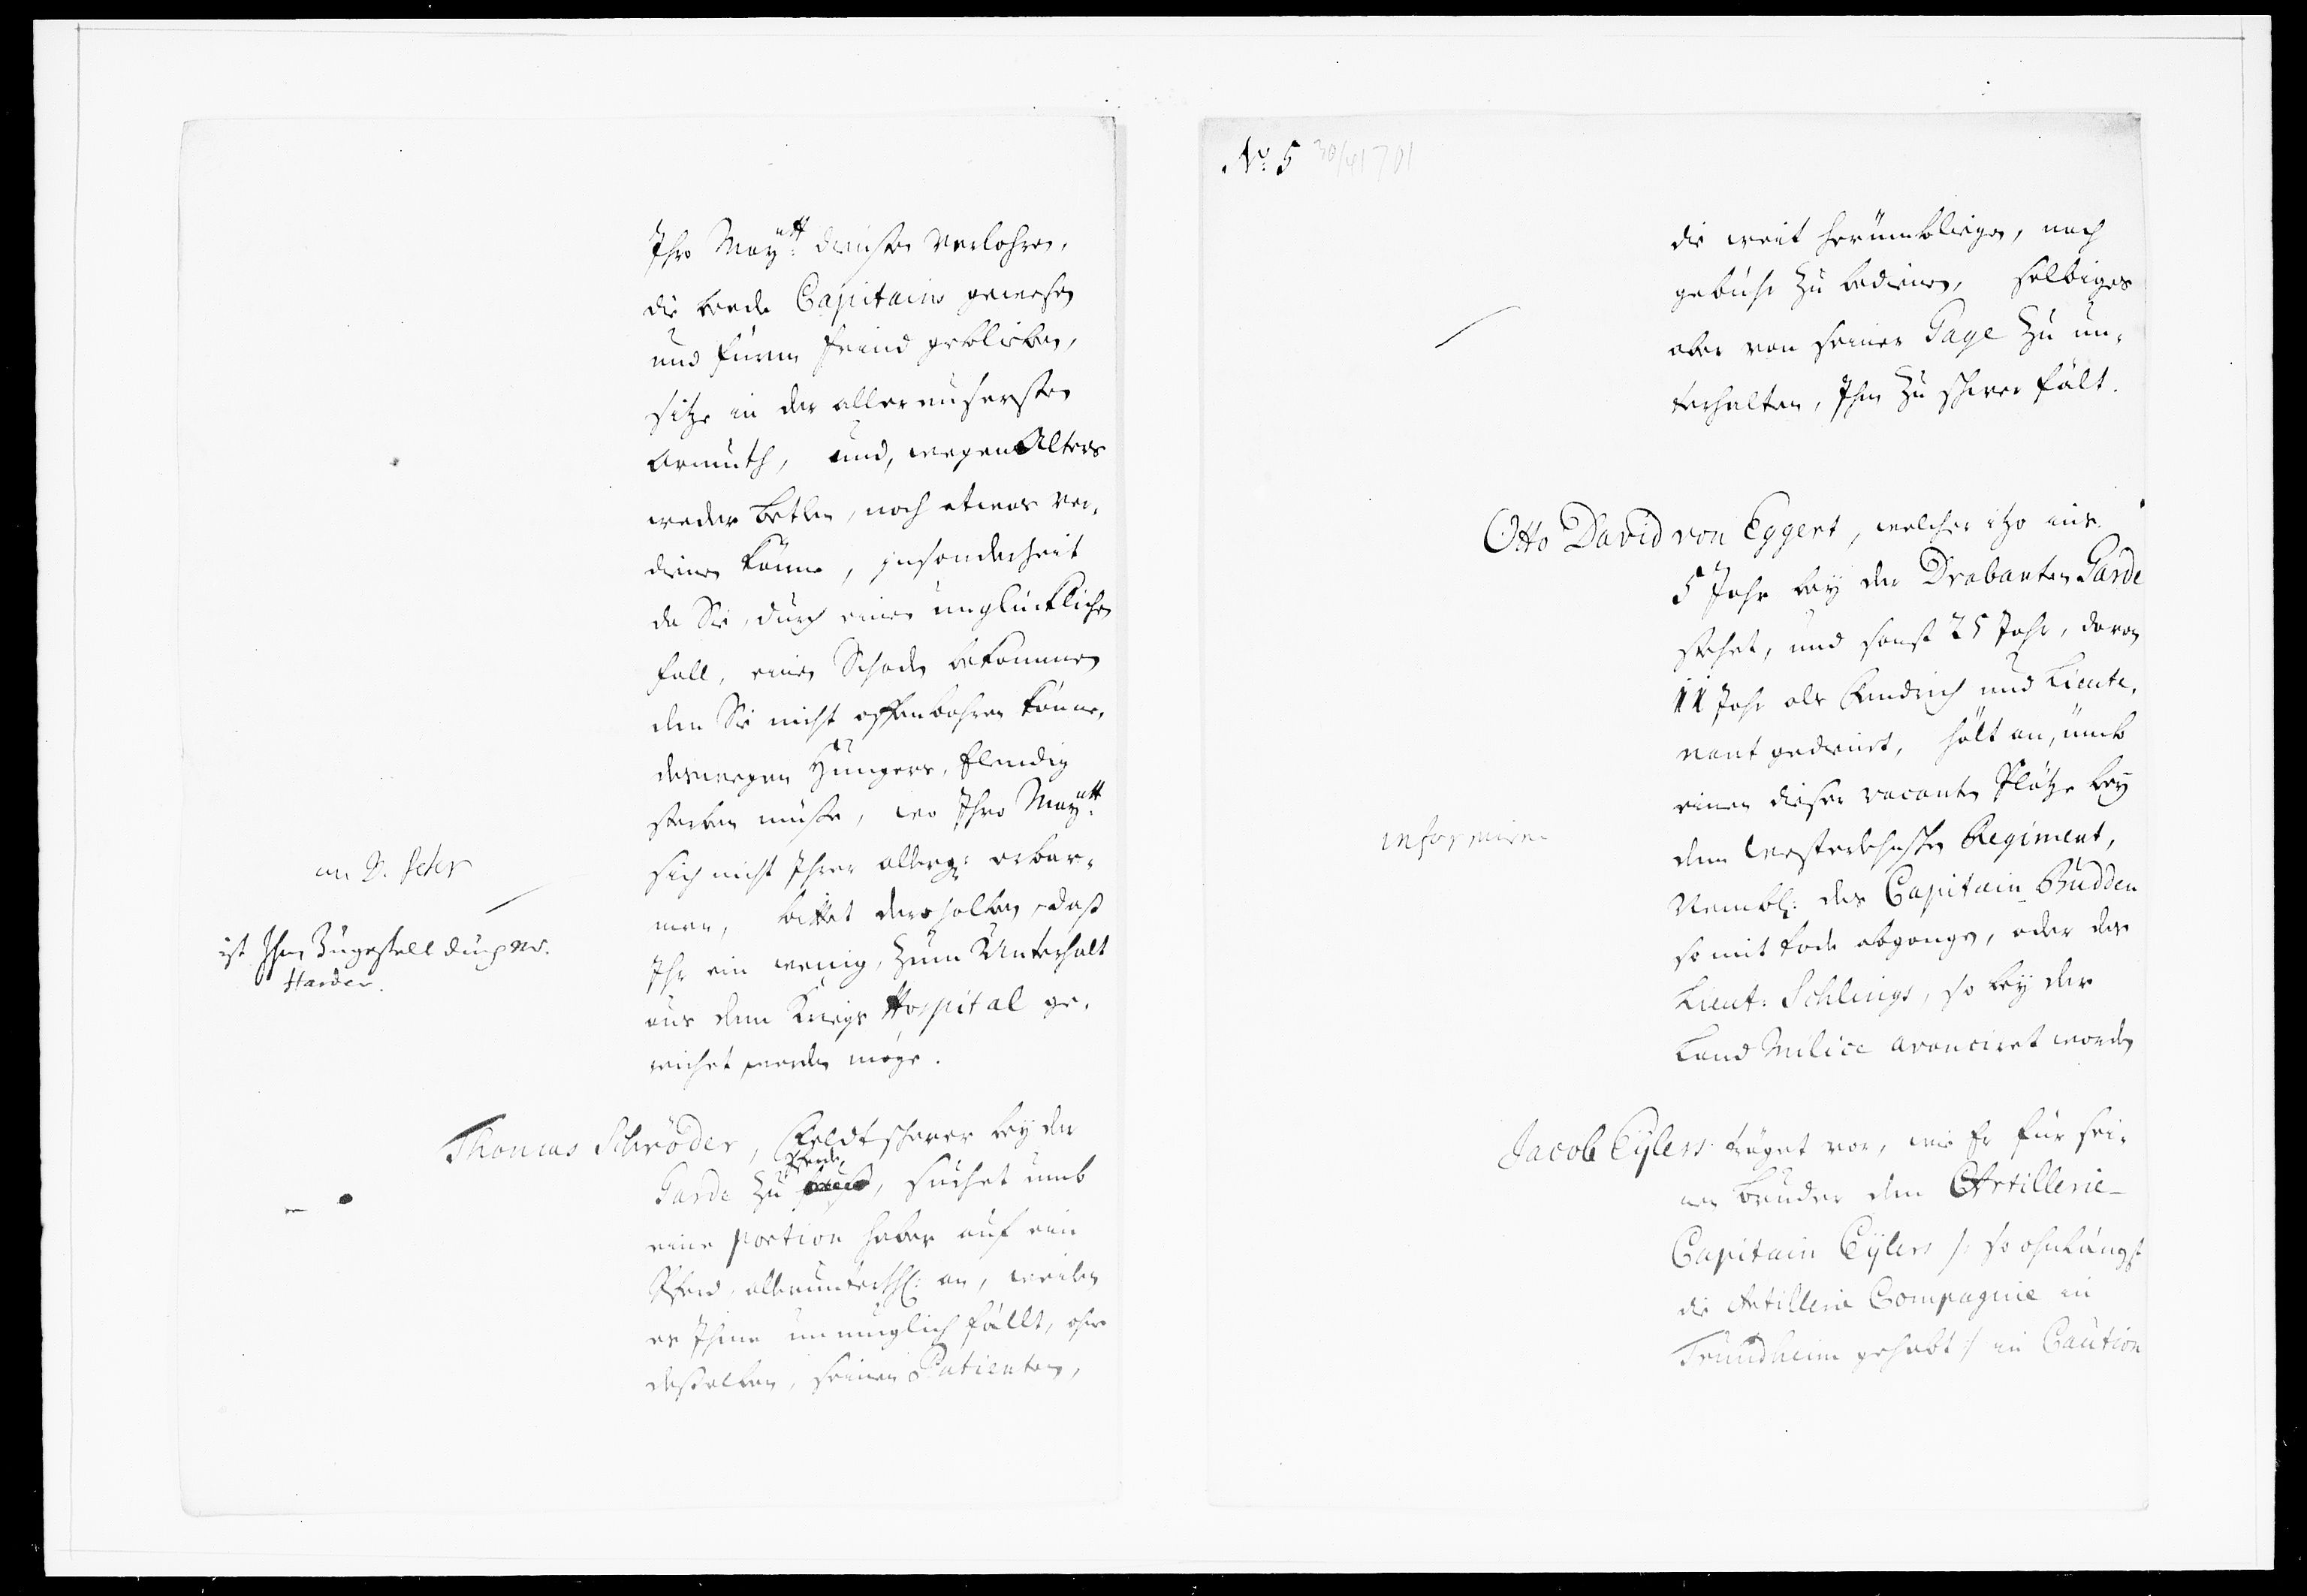 Ihro Maytt: dienste verlohren,
die beede Capitains gewesen
und fürm feind geblieben,
sitze in der allereusersten
Armuth, und, wegen Alters
weder betlen, noch etwas ver-
dienen könne, insonderheit
da Sie, durch einen unglücklichen
fall, einen Schaden bekommen
den Sie nicht offenbahren könne,
deswegen Hungers, Elendig
sterben müste, wo Ihro Maytt:
sich nicht Ihrer allerg: erbar-
men, bittet derohalben, daß
Ihr ein wenig, zum Unterhalt
aus dem Kriegs Hospital ge-
reichet werden möge.
an D.
ist Ihm Zugestell durch Mr.
Harder.
Thomas Schröder, Feldtscherer bey der
Garde zu Pferde, suchet umb
eine portion haber auf ein
Pferd, allerunterth: an, weilen
es Ihme unmuglich fällt, ohne
deßelben, seinen Patienten,
No: 5 30/4 1701
die weit herümb liegen, nach
gebühr zu bedienen, selbiges
aber von seiner Gage zu un-
terhalten, Ihm zu schwer fält.
Otto David von Eggert, welcher itzo ins
5 Jahr bey der Drabanten Garde
stehet, und sonst 25 Jahr, davon
11 Jahr als Fendrich und Lieute-
nant gedienet, hält an, umb
einen dieser vacanten Plätze bey
dem Westerlehnschen Regiment,
Nembl: des Capitain Budden
so mit tode abgangen, oder des
Lieut: Schlings, so bey der
Land Milice avanciret worden
informiren
Jacob Eylers träget vor, wie Er für sei-
nen bruder dem Artillerie-
Capitain Eylers /: so ohnlängst
die Artillerie Compagnie in
Trundheim gehabt :/ in Caution